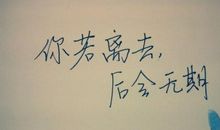 你若离去,
后会无期